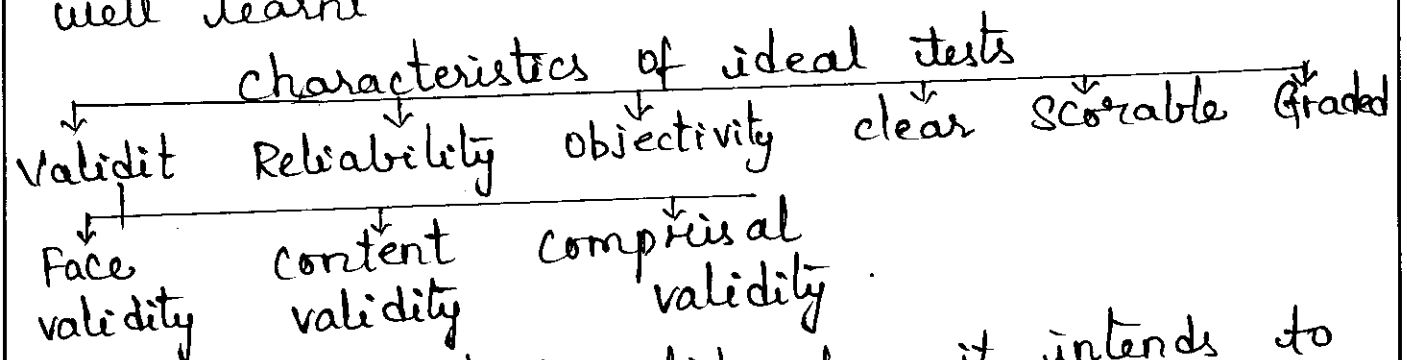 well learnt
characteristics of ideal tests
Validit Reliability objectivity clear Scorable Graded
Face content compriisal
validity validity validity.
it intends to